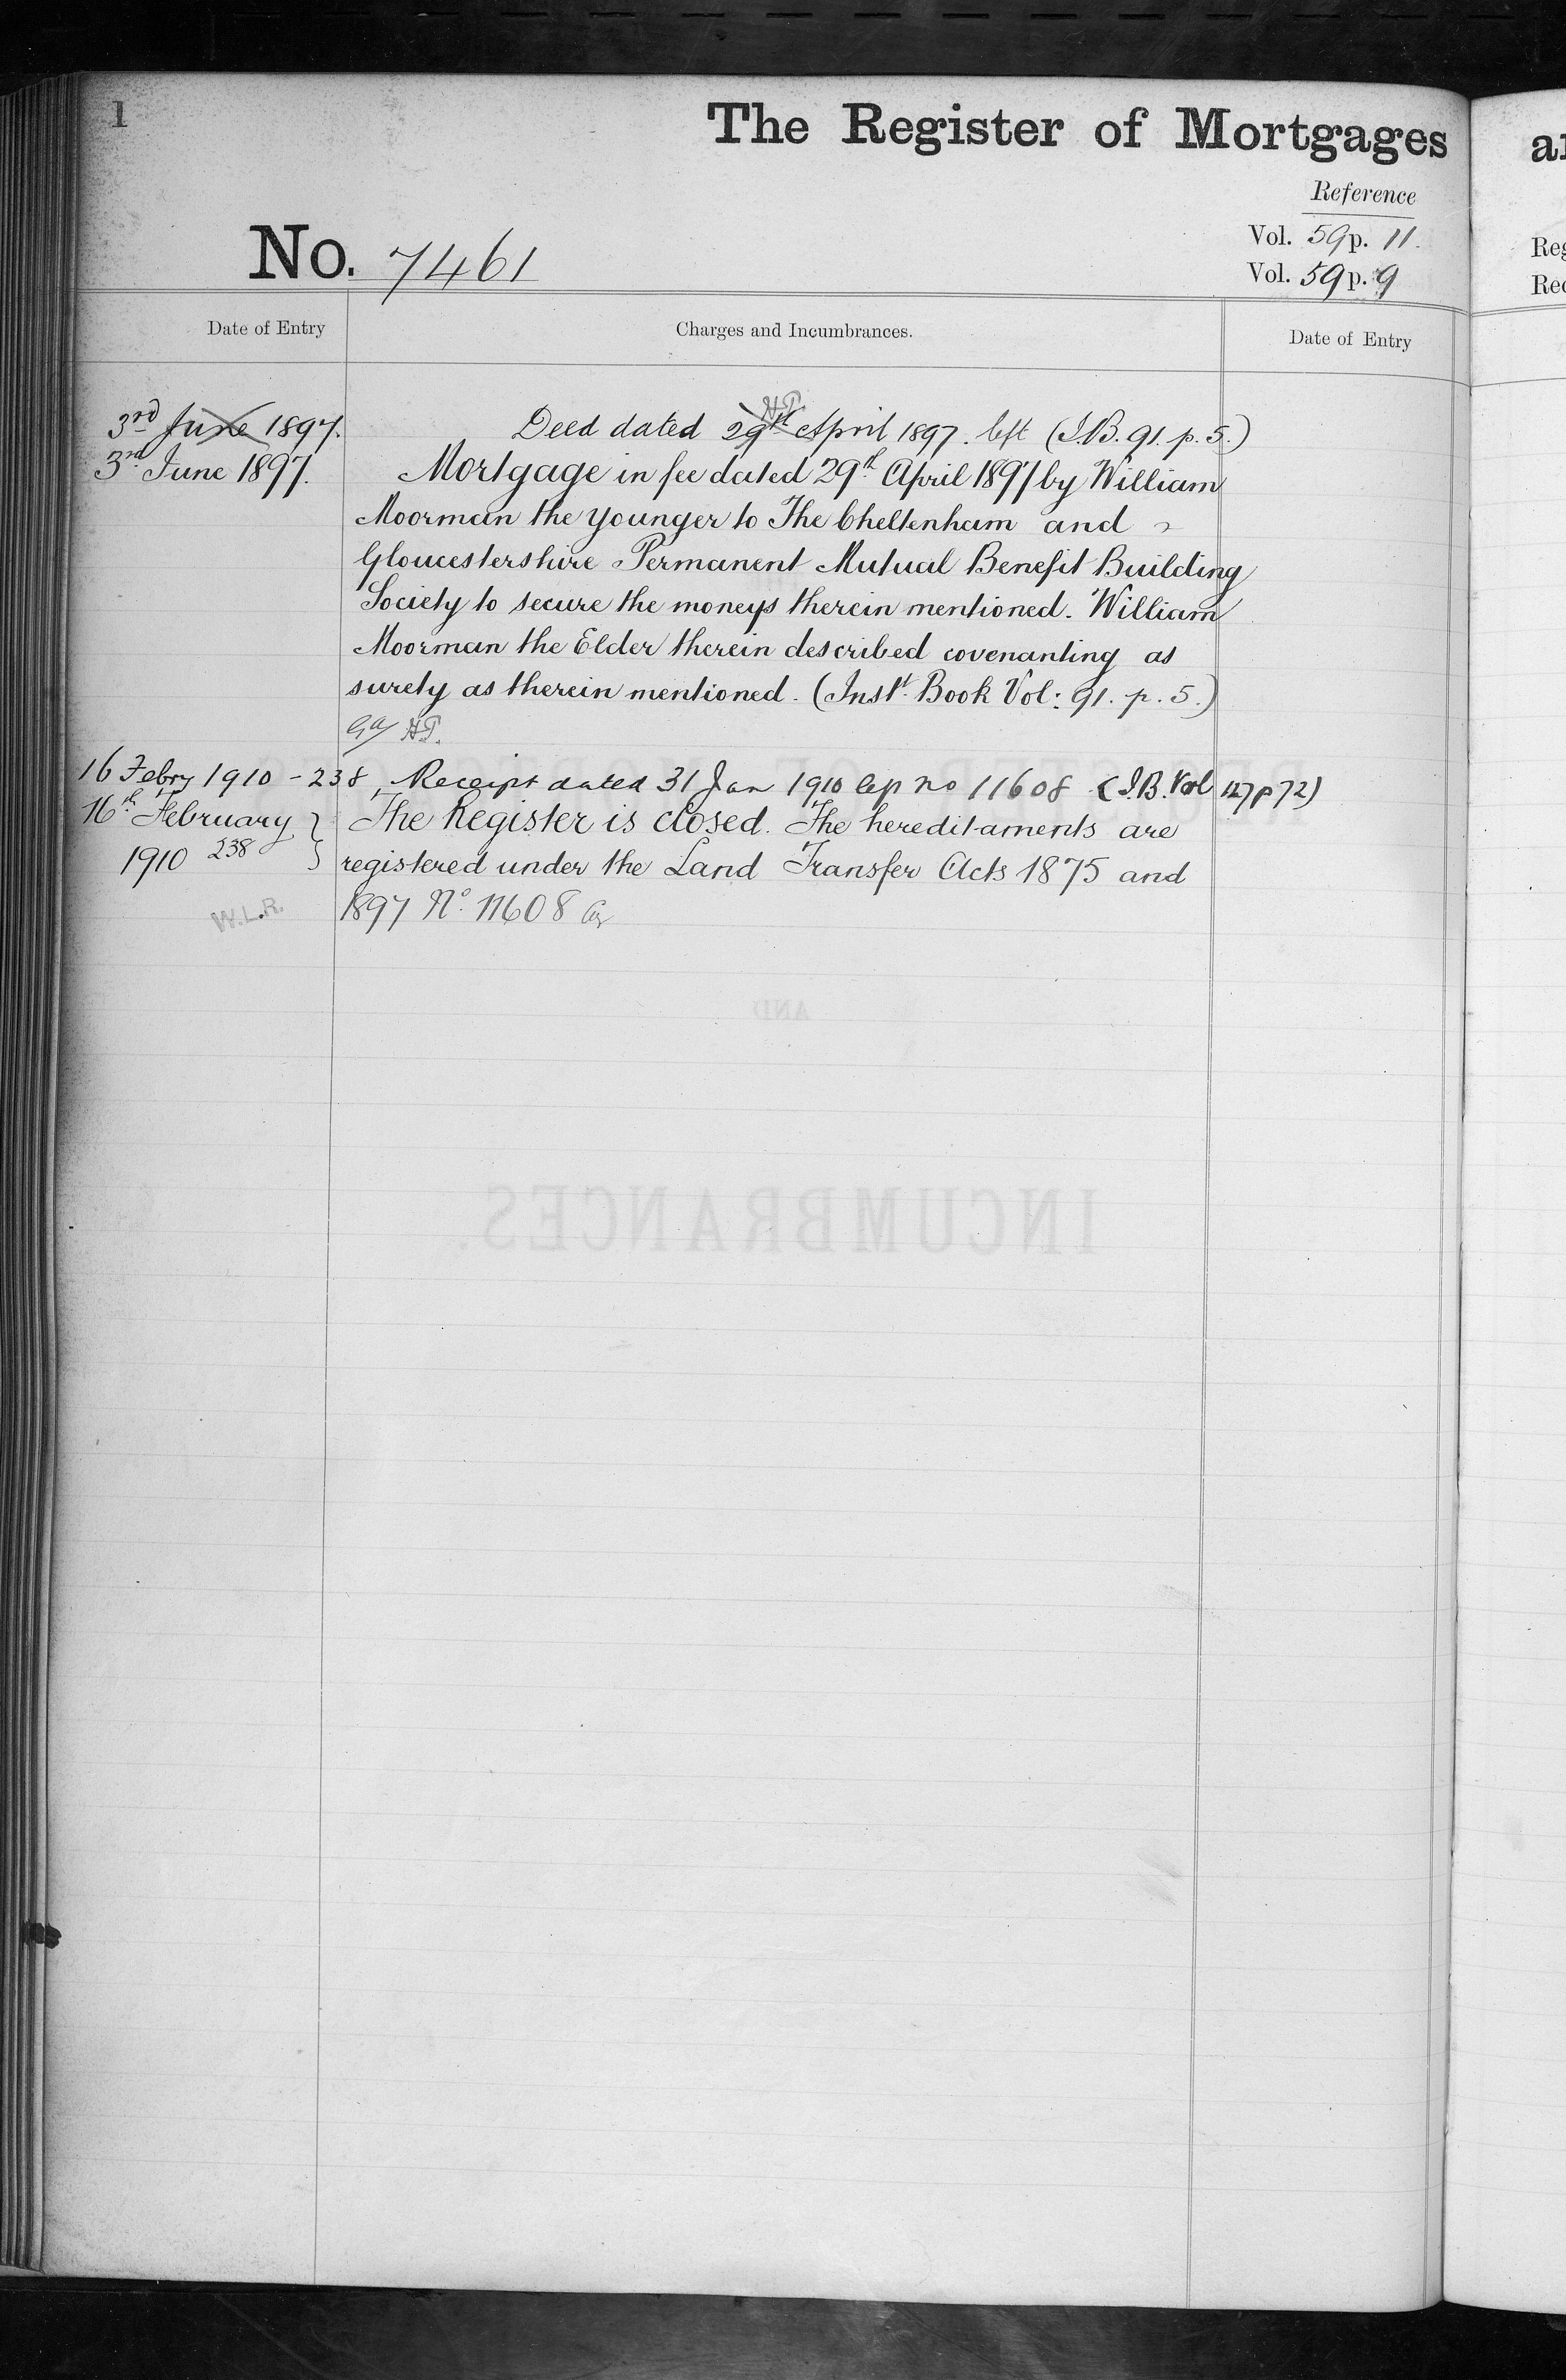 1
The Register of Mortgages
Reference
Vol. 59 p. 11.
Vol. 59 p. 9
No. 7461
Date of Entry
Charges and Incumbrances.
Date of Entry
3rd June 1897.
Deed dated 29th April 1897. left (I.B. 91. p. 5.)
3rd June 1897.
Mortgage in fee dated 29th April 1897 by William
Moorman the younger to The Cheltenham and
Gloucestershire Permanent Mutual Benefit Building
Society to secure the moneys therein mentioned. William
Moorman the Elder therein described covenanting as
surety as therein mentioned. (Instt. Book Vol: 91. p. 5.)
16 Febry 1910 - 238, Receipt dated 31 Jan 1910 no 11608 (I.B. Vol 127 p 72)
16th February
1910 238
The Register is closed. The hereditaments are
registered under the Land Transfer Acts 1875 and
1897 No. 11608
W.L.R.
AND
INCUMBRANCES.